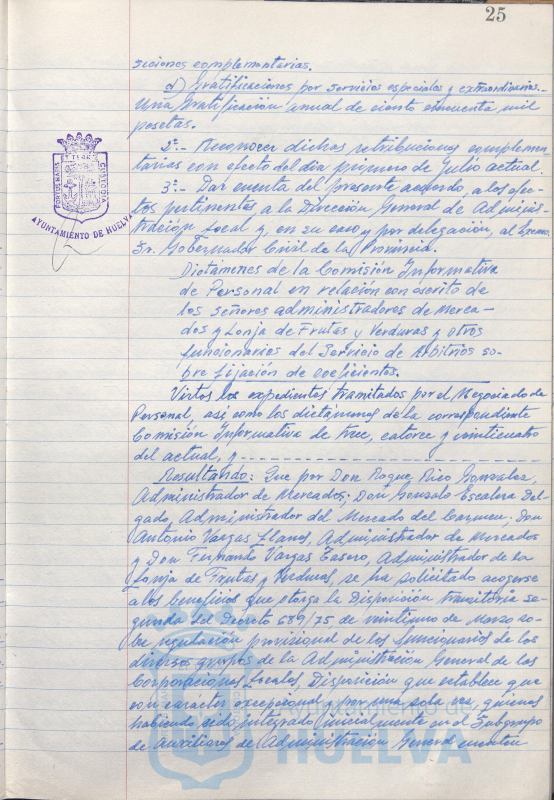 25
siciones complementarias.
d) Gratificaciones por servicios especiales y extraordinarios.-
Una gratificación anual de ciento cincuenta mil
pesetas.
2º.- Reconocer dichas retribuciones complemen-
tarias con efecto del día primero de Julio actual.
3º.- Dar cuenta del presente acuerdo, a los efec-
tos pertinentes, a la Dirección General de Adminis-
tración Local y, en su caso y por delegación, al Excmo.
Sr. Gobernador Civil de la Provincia.
Dictámenes de la Comisión Informativa
de Personal en relación con escrito de
los señores administradores de Merca-
dos y Lonja de Frutas y Verduras y otros
funcionarios del Servicio de Arbitrios so-
bre fijación de coeficientes.
Vistos los expedientes tramitados por el Negociado de
Personal, así como los dictámenes de la correspondiente
Comisión Informativa de trece, catorce y veinticuatro
del actual, y
Resultando: Que por Don Roque Rico Gonzalez,
Administrador de Mercados; Don Gonzalo Escalera Del-
gado, Administrador del Mercado del Carmen; Don
Antonio Vargas Llanes, Administrador de Mercados
y Don Fernando Vargas Tasero, Administrador de la
Lonja de Frutas y Verduras, se ha solicitado acogerse
a los beneficios que otorga la Disposición transitoria se-
gunda del Decreto 689/75 de veintiuno de Marzo so-
bre regulación provisional de los funcionarios de los
diversos grupos de la Administración General de las
Corporaciones Locales, Disposición que establece que
con carácter excepcional y por una sola vez, quienes
habiendo sido integrado inicialmente en el Subgrupo
de Auxiliares de Administración General cuenten
PORTUS MARIS
ET TERRAE
CUSTODIA
AYUNTAMIENTO DE HUELVA
HUELVA